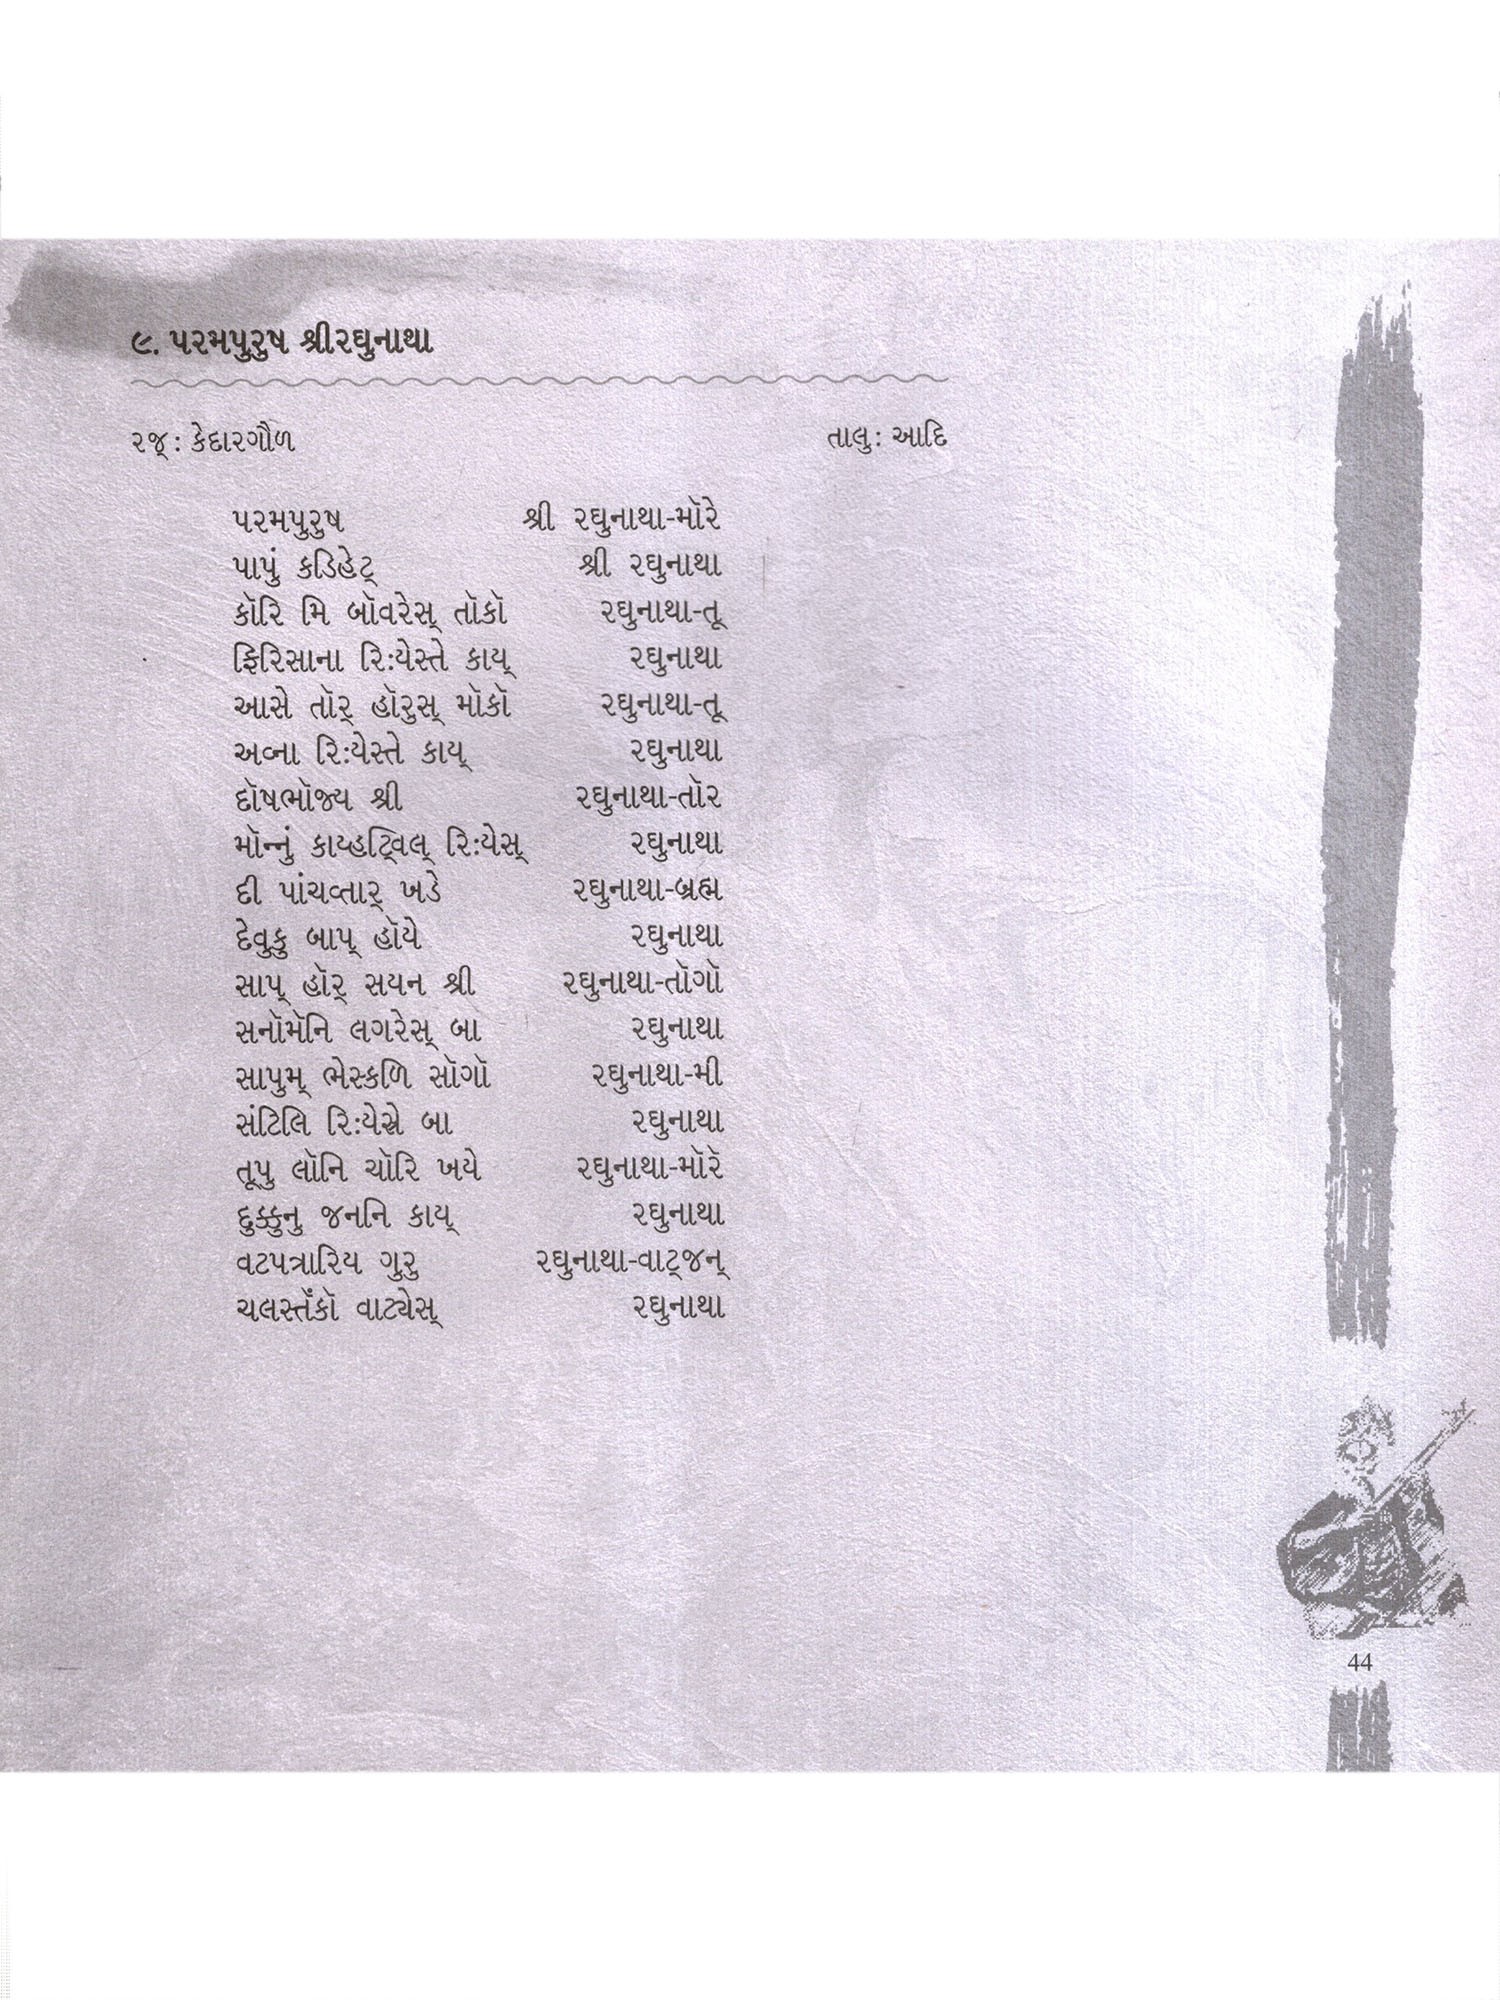 ૯. પરમપુરુષ શ્રીરઘુનાથા
રજૂ: કેદારગૌળ તાલુ: આદિ
પરમપુરુષ શ્રી રઘુનાથા-મૉરે
પાપું કડિહેટ્ શ્રી રઘુનાથા
કૉરિ મિ બૉવરેસ્ તૉકૉ રઘુનાથા-તૂ
ફિરિસાના રિ:યેસ્તે કાય્ રઘુનાથા
આસે તૉર્ હૉરુસ્ મૉકૉ રઘુનાથા-તૂ
અવ્ના રિ:યેસ્તે કાય્ રઘુનાથા
દૉષભૉજ્ય શ્રી રઘુનાથા-તૉર
મૉન્નું કાય્હટ્વિલ્ રિ:યેસ્ રઘુનાથા
દી પાંચવ્તાર્ ખડે રઘુનાથા-બ્રહ્મ
દેવુકુ બાપ્ હૉયે રઘુનાથા
સાપ્ હૉર્ સયન શ્રી રઘુનાથા-તૉગૉ
સનૉમૅનિ લગરેસ્ બા રઘુનાથા
સાપુમ્ ભેસ્કળિ સૉગૉ રઘુનાથા-મી
સંટિલિ રિ:યેસ્રે બા રઘુનાથા
તૂપુ લૉનિ ચૉરિ ખયે રઘુનાથા-મૉરૅ
દુક્કુનુ જનનિ કાય્ રઘુનાથા
વટપત્રારિય ગુરુ રઘુનાથા-વાટ્જન્
ચલસ્તૅંકૉ વાટ્યેસ્ રઘુનાથા
44